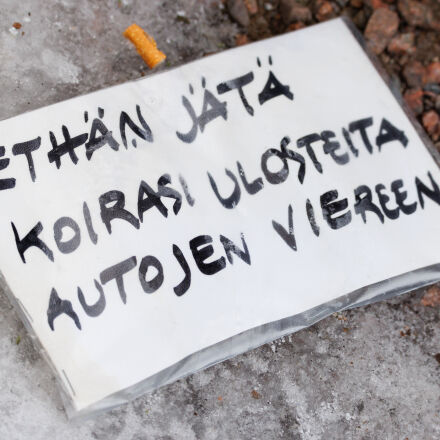 ETHÄN JÄTÄ
KOIRASI ULOSTEITA
AUTOJEN VIEREEN